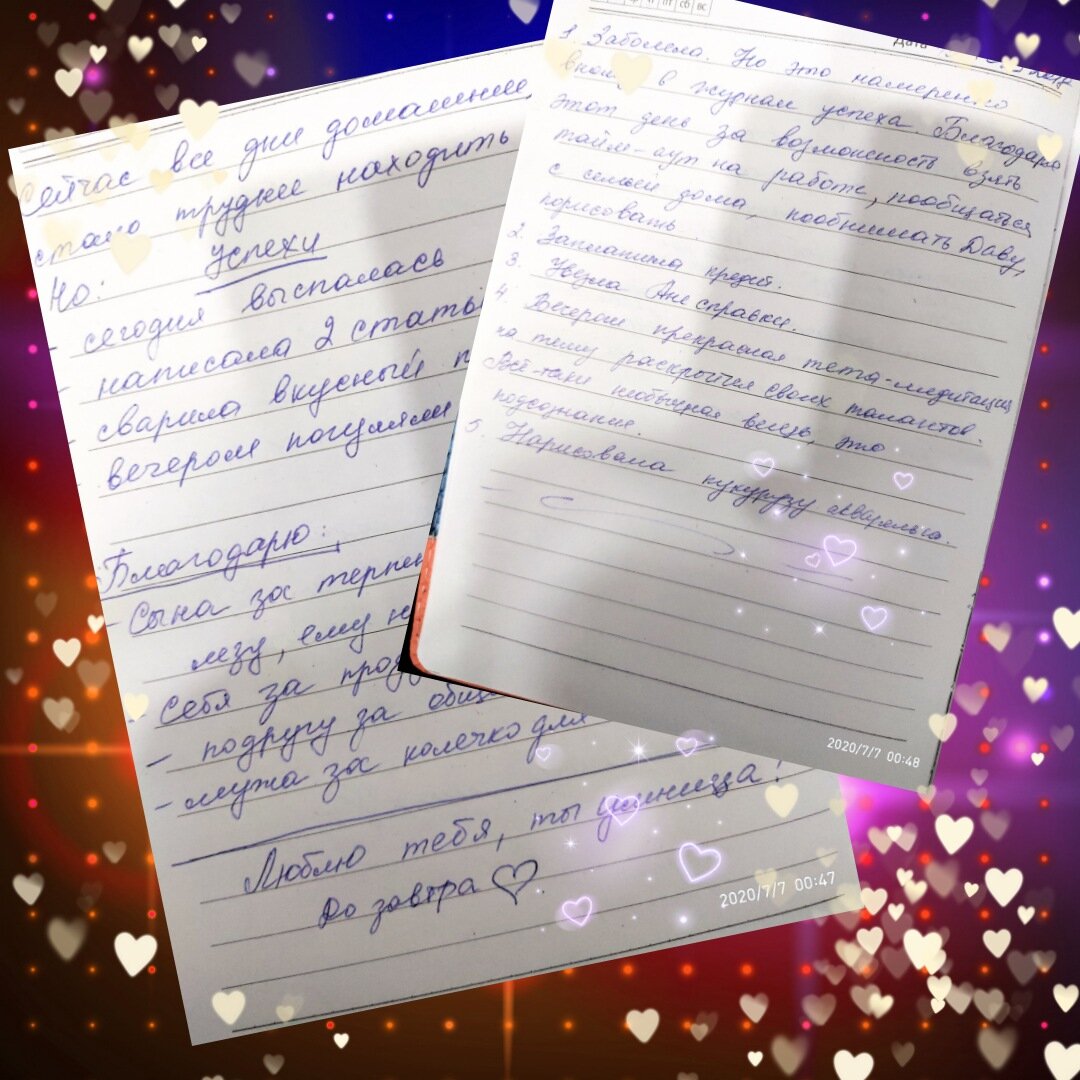 Сейчас все дни домашние,
стало труднее находить
успехи
Но:
- сегодня выспалась
- написала 2 стать
- сварила вкусный п
- вечером погуляли
Благодарю:
- Сына за терпен
лезу, ему н
- Себя за прод
- подругу за общ
- мужа за колечко для
Люблю тебя, ты умница!
До завтра ♡
2020/7/7 00:47
пт сб вс
Дата
1. Заболела. Но это намеренно
в журнал успеха. Благодарю
этот день за возможность взять
тайм-аут на работе, пообщаться
с семьей дома, пообнимать Даву,
порисовать
2. Заплатила кредит.
3. Увезла Ане справки.
4. Вечером прекрасная тета-медитация
на тему раскрытия своих талантов.
Всё-таки необычная вещь, это
подсознание.
5. Нарисовала кукурузу акварелью.
2020/7/7 00:48